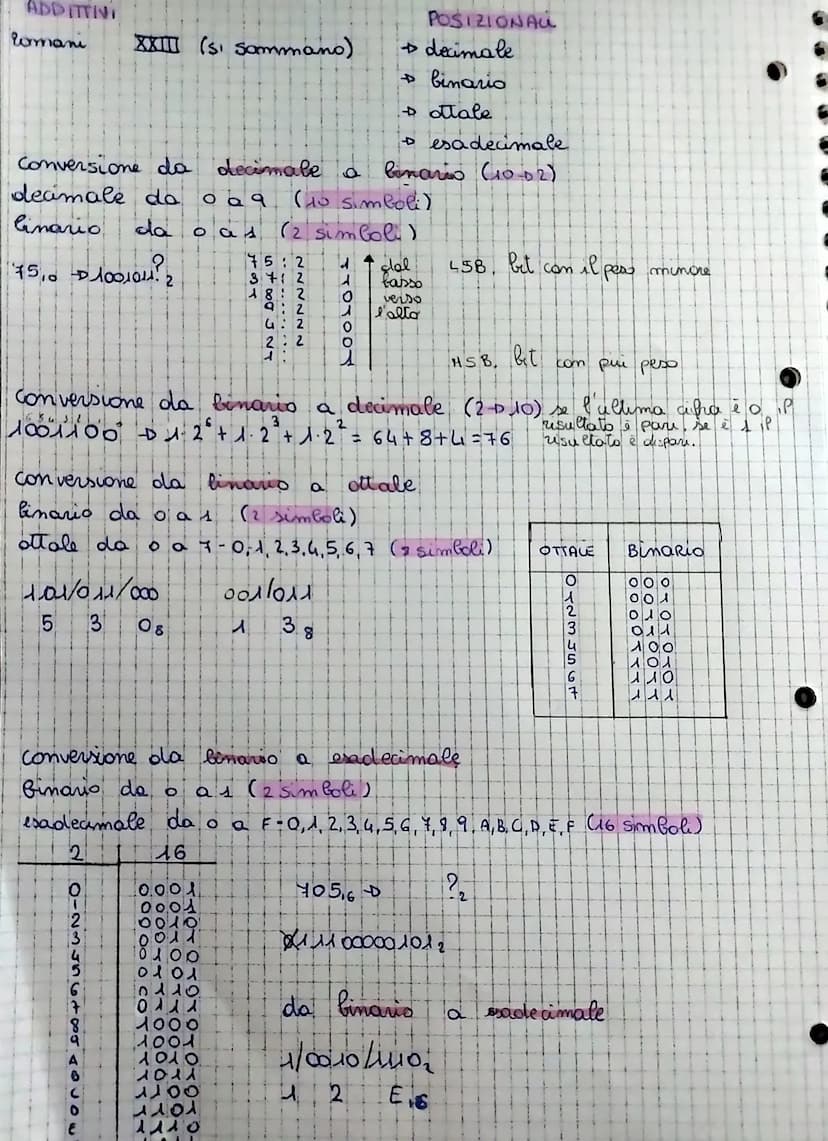 ADDITIVI
POSIZIONALI
Romani XXIII (si sommano) → decimale
→ binario
→ ottale
→ esadecimale
conversione da decimale a binario (10→2)
decimale da 0 a 9 (10 simboli)
binario da 0 a 1 (2 simboli)
75₁₀ → 1001011?₂
75:2 1
37:2 1
18:2 0
9:2 1
4:2 0
2:2 0
1: 1
dal
basso
verso
l'alto
LSB. bit con il peso minore
MSB. bit con pui peso
conversione da binario a decimale (2→10) se l'ultima cifra è 0 iP
risultato è pari, se è 1 iP
risultato è dispari.
1001100 → 1·2⁶+1·2³+1·2² = 64+8+4=76
conversione da binario a ottale
binario da 0 a 1 (2 simboli)
ottale da 0 a 7-0,1,2,3,4,5,6,7 (7 simboli)
101/011/000 001/011
5 3 0₈ 1 3₈
OTTALE BinARIO
0 000
1 001
2 010
3 011
4 100
5 101
6 110
7 111
conversione da binario a esadecimale
Binario da 0 a 1 (2 simboli)
esadecimale da 0 a F-0,1,2,3,4,5,6,7,8,9,A,B,C,D,E,F (16 simboli)
2 16
0 0001
1 0001
2 0010
3 0011
4 0100
5 0101
6 0110
7 0111
8 1000
9 1001
A 1010
B 1011
C 1100
D 1101
E 1110
705₁₆ → ?₂
11100000101₂
da binario a esadecimale
1/0010/1110₂
1 2 E₁₆